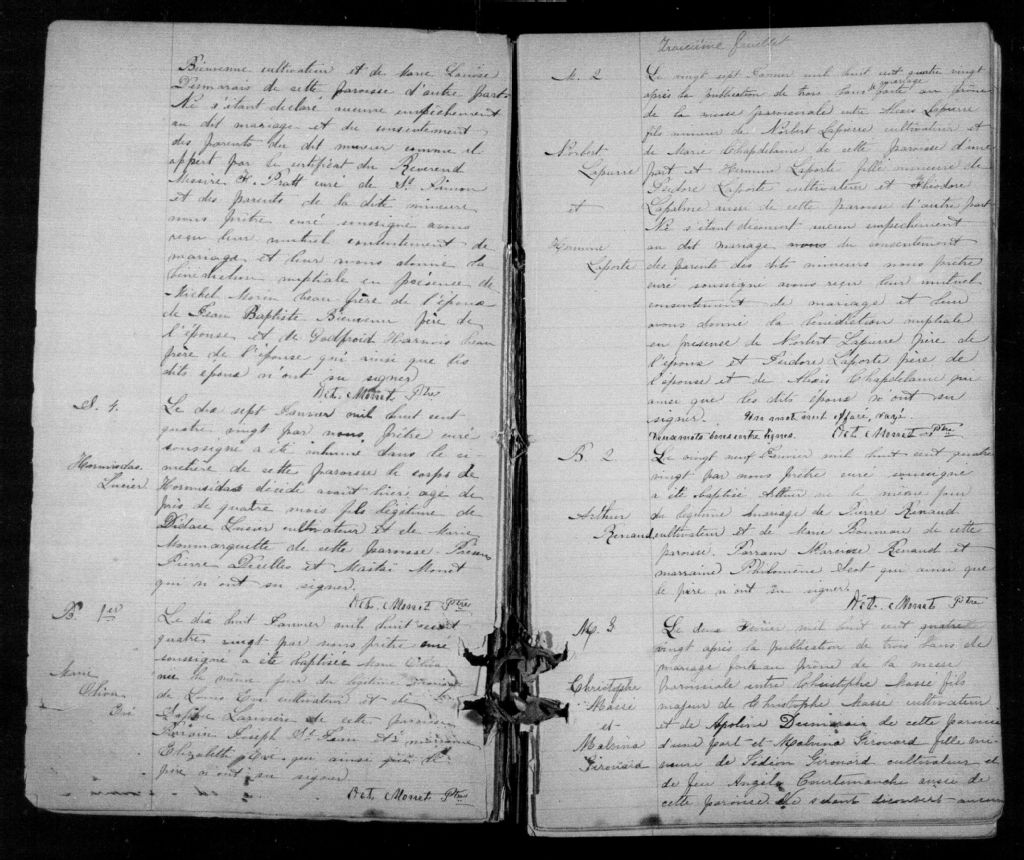 Bienvenue cultivateur et de Marie Louise
Desmarais de cette paroisse d'autre part
Ne s'étant déclaré aucune empêchement
au dit mariage et du consentement
des parents du dit mineur comme il
appert par le certificat du Reverend
Messire H. Pratt curé de St Simon
et des parents de la dite mineure
nous prêtre curé soussigné avons
reçu leur mutuel consentement de
mariage et leur avons donné la
bénédiction nuptiale en présence de
Michel Morin beau frère de l'époux
de Jean Baptiste Bienvenue père de
l'épouse et de Godfroid Harnois beau
frère de l'épouse qui ainsi que les
dits époux n'ont su signer
Oct. Monet Ptre
S. 4.
Hormisdas
Lucier
Le dix sept Janvier mil huit cent
quatre vingt par nous prêtre curé
soussigné a été inhumé dans le ci-
metière de cette paroisse le corps de
Hormisdas décédé avant hier age de
près de quatre mois fils légitime de
Didace Lucier cultivateur et de Marie
Monmarquette de cette paroisse. Présens
Pierre Décelles et Monet
qui n ont su signer.
Oct. Monet Ptre
B. 1er
Marie
Oliva
Le dix huit Janvier mil huit cent
quatre vingt par nous prêtre curé
soussigné a été baptisée Marie Oliva
née le même jour du légitime mariage
de Louis cultivateur et de
Larivière de cette paroisse
Parrain Joseph St Jean et marraine
Elizabeth qui ainsi que le
père n ont su signer
Oct. Monet Ptre
Troisième feuillet
M. 2
Norbert
Lapierre
et
Hermine
Laporte
Le vingt sept Janvier mil huit cent quatre vingt
après la publication de trois bans de mariage faite au prône
de la messe paroissiale entre Alexis Lapierre
fils mineur de Norbert Lapierre cultivateur et
de Marie Chapdelaine de cette paroisse d'une
part et Hermine Laporte fille mineure de
Isidore Laporte cultivateur et Théodore
Lapalme aussi de cette paroisse d'autre part
Ne s'étant découvert aucun empêchement
au dit mariage nous du consentement
des parents des dits mineurs nous prêtre
curé soussigné avons reçu leur mutuel
consentement de mariage et leur
avons donné la bénédiction nuptiale
en présence de Norbert Lapierre père de
l'époux et Isidore Laporte père de
l'épouse et de Alexis Chapdelaine qui
ainsi que les dits époux n'ont su
signer. Un mot rayé.
Deux mots bons entre lignes. Oct. Monet Ptre
B. 2
Arthur
Renaud
Le vingt neuf Janvier mil huit cent quatre
vingt par nous prêtre curé soussigné
a été baptisé Arthur né le même jour
du légitime mariage de Pierre Renaud
cultivateur et de Marie de cette
paroisse. Parrain Narcisse Renaud et
marraine Philomène qui ainsi que
le père n ont su signer.
Oct. Monet Ptre
M. 3
Christophe
Massé
et
Malvina
Girouard
Le deux Février mil huit cent quatre
vingt après la publication de trois bans de
mariage faite au prône de la messe
paroissiale entre Christophe Massé fils
majeur de Christophe Massé cultivateur
et de Apoline Desmarais de cette paroisse
d'une part et Malvina Girouard fille mi-
neure de Gédéon Girouard cultivateur et
de feu Angèle Courtemanche aussi de
cette paroisse. Ne s'étant découvert aucun